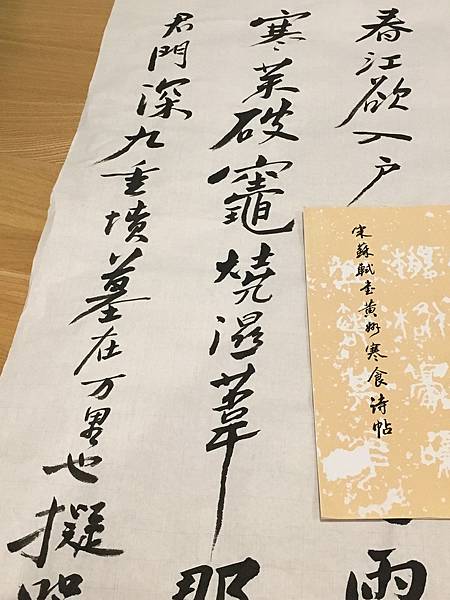 春江欲入户雨
寒菜破竈燒濕葦那
君門深九重墳墓在万里也擬
宋蘇軾書黄州寒食诗帖